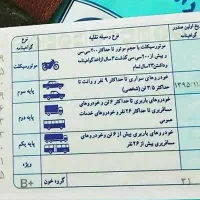 تاریخ اولین صدور
گواهینامه
نوع وسیله نقلیه
نوع
گواهینامه
موتورسیکلت با حجم موتور تا حداکثر ۲۰۰ سی سی
و بیش از ۲۰۰ سی سی گذشت ۲ سال از اخذ گواهینامه
و داشتن ۲۳ سال تمام
موتورسیکلت
خودروهای سواری تا حداکثر ۹ نفر و وانت تا
حداکثر ۳/۵ تن (شخصی)
پایه سوم
۱۳۹۵/۱۱
خودروهای باربری تا حداکثر ۶ تن و خودروهای
مسافربری تا حداکثر ۲۶ نفر و خودروهای خدمات
عمومی
پایه دوم
خودروهای باربری بیش از ۶ تن و خودروهای
مسافربری بیش از ۲۶ نفر
پایه یکم
ویژه
۳۱
گروه خون
B+